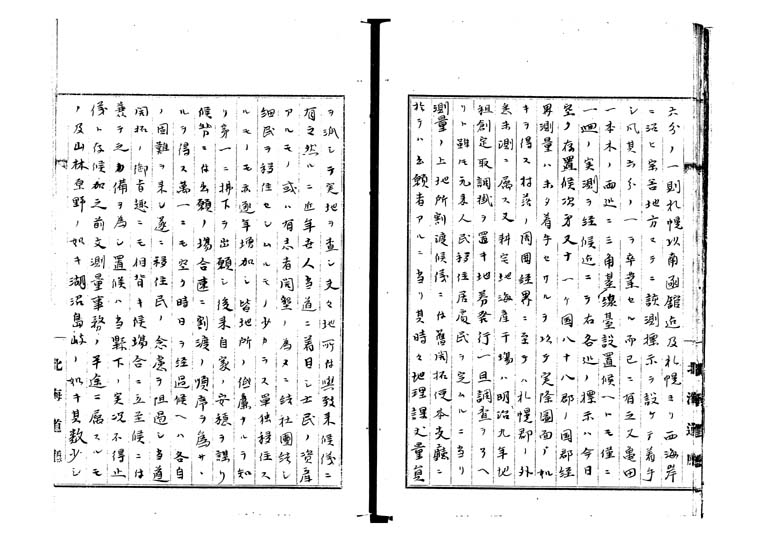 六分ノ一則札幌以南函館迄及札幌ヨリ西海岸
ニ沿ヒ室苫地方マテニ該測標示ヲ設ケテ着手
シ凡其六分ノ一ヲ卒業セル而已ニ有之又亀田
一本木ノ両所ニ三角基線基設置候ヘトモ僅ニ
一回ノ実測ヲ経候迄ニテ右各所ノ標示ハ今日
空ク存置候次第又十一ケ国八十八郡ノ国郡経
界測量ハ未タ着手セサルヲ以テ実際図面ノ如
キヲ得ス村落ノ周囲経界ニ至テハ札幌郡ノ外
悉未測ニ属ス又料定地海産干場ハ明治九年地
租創定取調掛ヲ置キ地券発行一旦調査ヲ了ヘ
リト雖モ元来人民移住居處民ヲ定ムルニ当リ
測量ノ上地所割渡候儀ニ付舊開拓使本支廳ニ
於テハ出願者アルニ当リ其時々地理課丈量員
ヲ派シテ実地ヲ査シ丈々地所付与致来候儀ニ
有之然ルニ近年吾人当道ニ着目シ士民ノ資産
アルモノ或ハ有志者開墾ノ為メニ結社團結シ
細民ヲ移住セシムルモノ少カラス単独移住ス
ルモノモ亦逐年増加シ皆地所ノ低廉ナルヲ知
リ争ニ拂下ヲ出願シ後来自家ノ安穏ヲ謀リ
候皆ニ付出願ノ場合速ニ割渡ノ順序ヲ為サヽ
ルヲ得ス萬一ニモ空ク時日ヲ経過候ヘハ各自
ノ困難ヲ来シ遂ニ移住民ノ念慮ヲ阻過シ当道
開拓ノ御旨趣ニモ相背キ候場合ニ立至候ニ付
兼テ之カ備ヲ為シ置候ハ当縣下ノ実況不得止
儀ト存候加之前文測量事務ノ半途ニ属スルモ
ノ及山林原野ノ如キ湖沼島嶼ノ如キ其数少シ
北海道廳
北海道廳